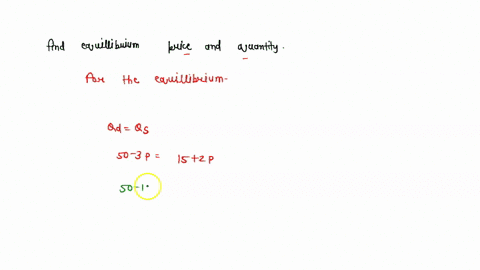 And equillibium price and quantity.
For the equillibrium-
Qd = Qs
50-3p = 15+2p
50-1